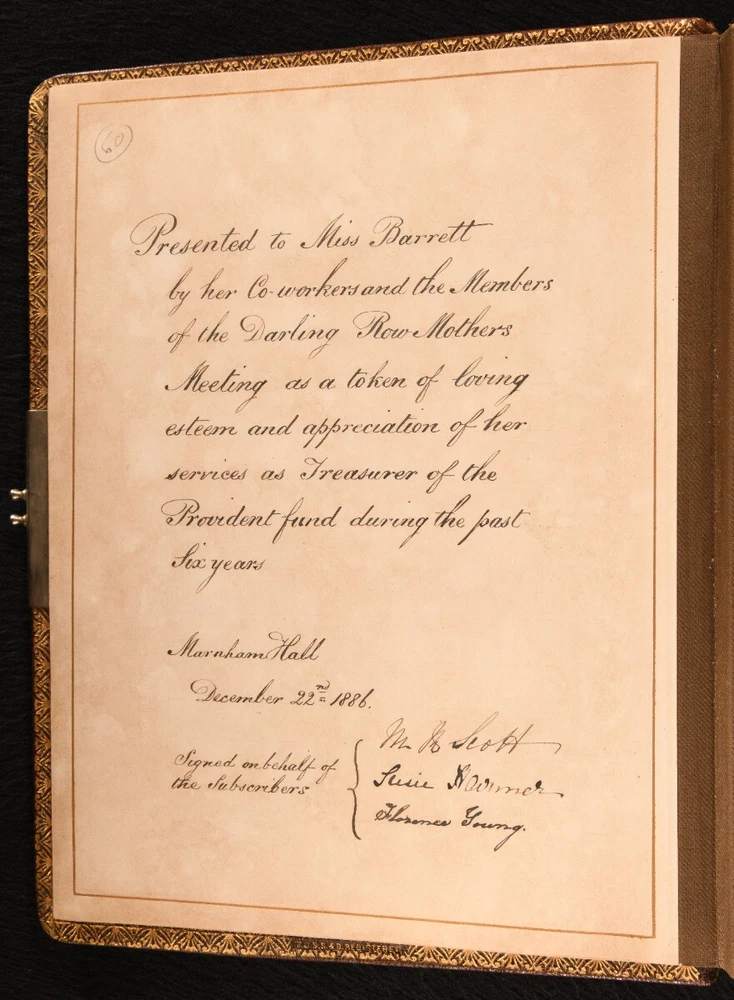 60
Presented to Miss Barrett
by her Co-workers and the Members
of the Darling Row Mothers
Meeting as a token of loving
esteem and appreciation of her
services as Treasurer of the
Provident fund during the past
Six years
Marnham Hall
December 22nd 1886.
Signed on behalf of
the Subscribers
M Scott
Susie
Florence Young.
REGISTERED